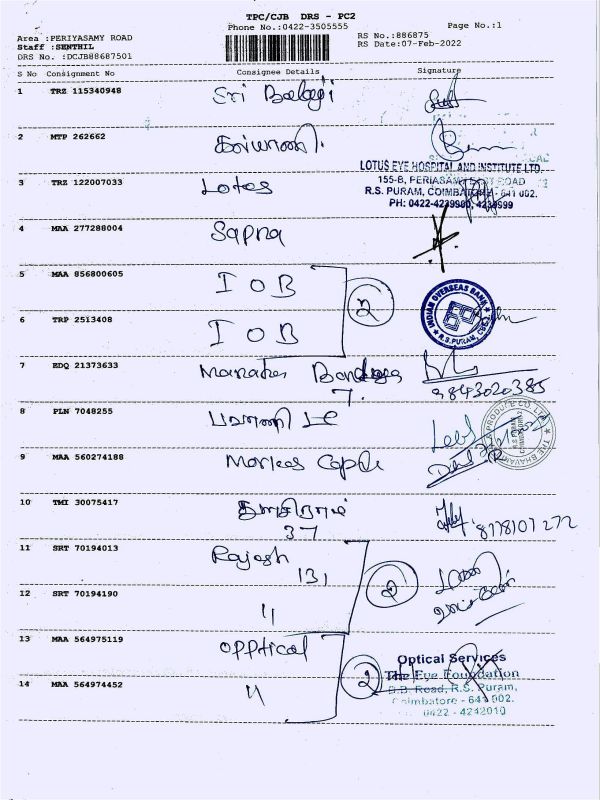 TPC/CJB DRS - PC2
Phone No.:0422-3505555 Page No.:1
Area :PERIYASAMY ROAD RS No.:886875
Staff :SENTHIL RS Date:07-Feb-2022
DRS No. :DCJB88687501
S No Consignment No Consignee Details Signature
1 TRZ 115340948 Sri Balaji
2 MTP 262662 கல்யாணி
LOTUS EYE HOSPITAL AND INSTITUTE LTD.
155-B, PERIASAMY ROAD
3 TRZ 122007033 Lotas
R.S. PURAM, COIMBATORE - 641 002.
PH: 0422-4239900, 4239999
4 MAA 277288004 Sapna
5 MAA 856800605 IOB
2
INDIAN OVERSEAS BANK
R.S.PURAM, CBE
6 TRP 2513408 IOB
7 EDQ 21373633
7. 9843020385
8 PLN 7048255
9 MAA 560274188
10 TMI 30075417
37
11 SRT 70194013 Rajesh
131
2
12 SRT 70194190 "
13 MAA 564975119 opptical
Optical Services
2 The Eye Foundation
14 MAA 564974452 "
D.B. Road, R.S. Puram,
Coimbatore - 641 002.
0422 - 4242010